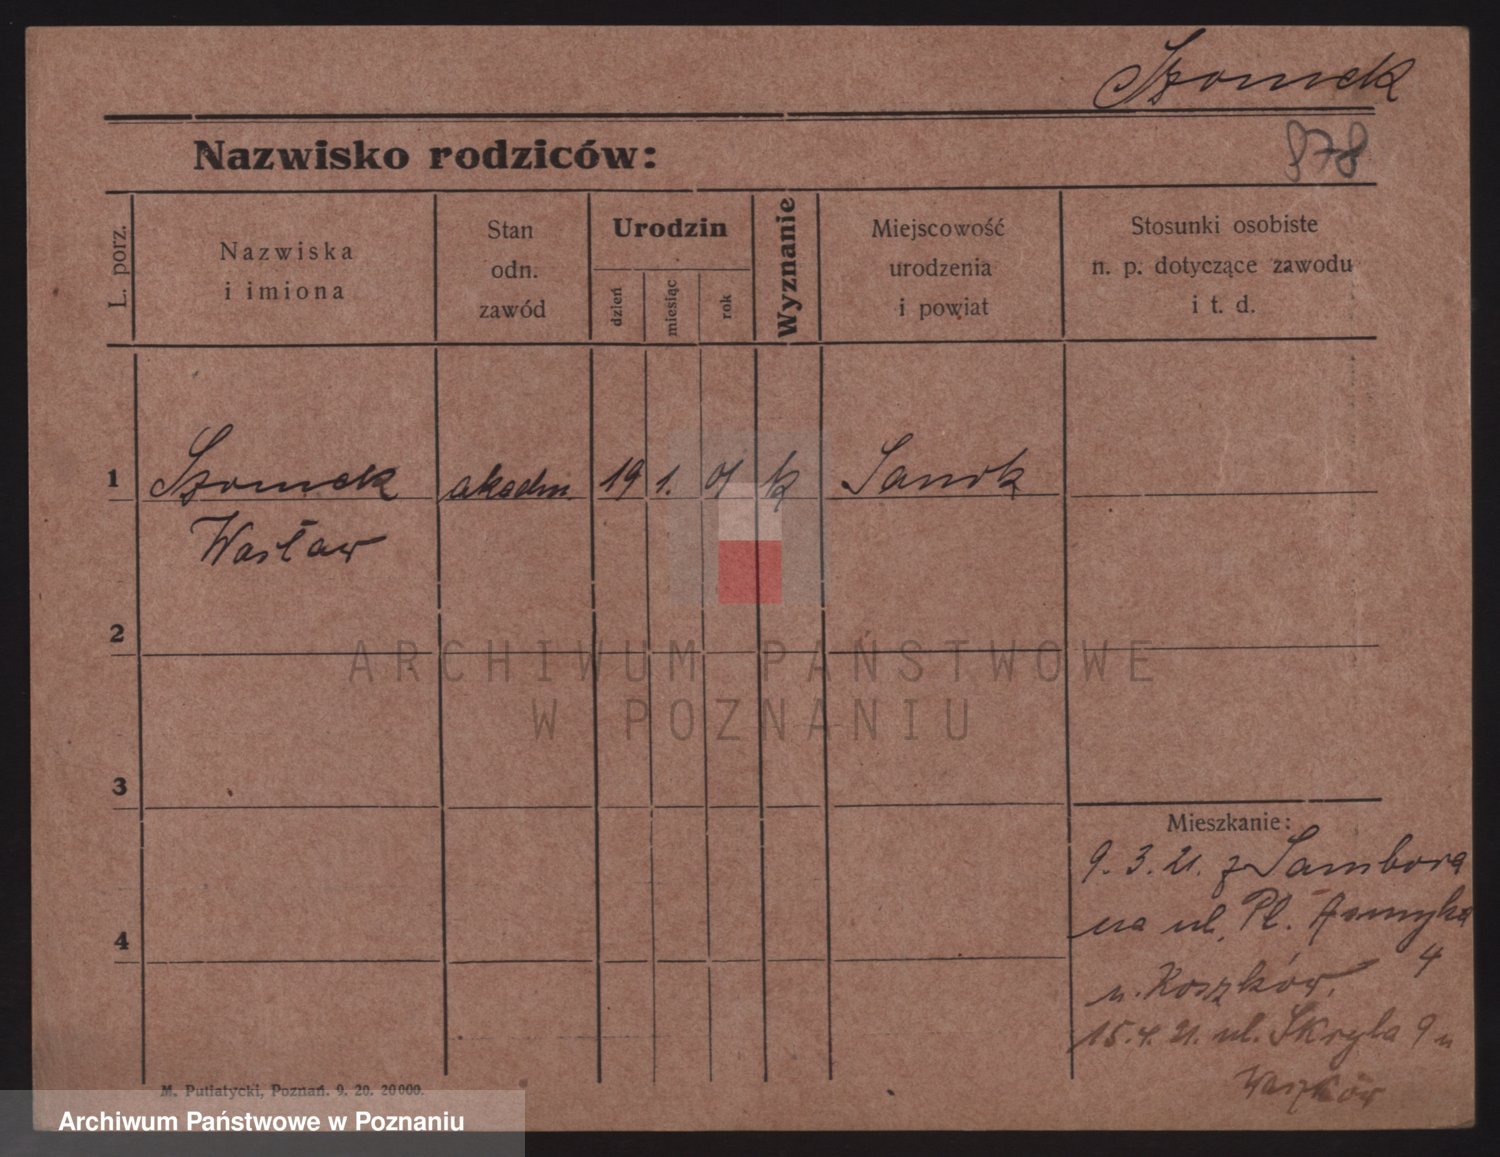 Szomek
878
Nazwisko rodziców:
L. porz.
Nazwiska
i imiona
Stan
odn.
zawód
Urodzin
dzień
miesiąc
rok
Wyznanie
Miejscowość
urodzenia
i powiat
Stosunki osobiste
n. p. dotyczące zawodu
i t. d.
1
Szomek akadm. 19 1. 01 k Sanok
Wacław
2
ARCHIWUM PAŃSTWOWE
W POZNANIU
3
Mieszkanie:
9. 3. 21. z Sambora
na ul. Pl.
4
4
u. Koszków.
15. 4. 21. ul. 9 u
M. Putiatycki, Poznań. 9. 20. 20000.
Archiwum Państwowe w Poznaniu